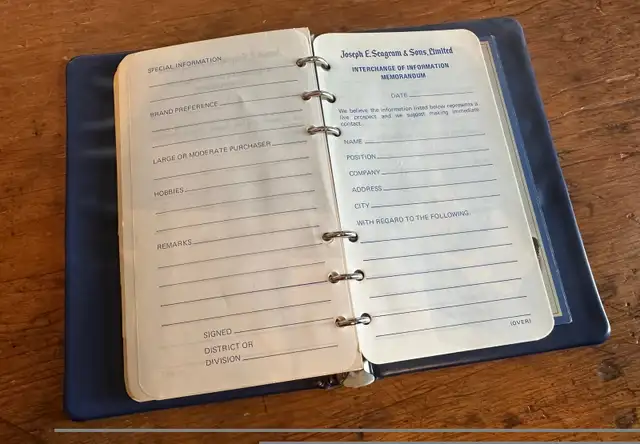 SPECIAL INFORMATION
BRAND PREFERENCE
LARGE OR MODERATE PURCHASER
HOBBIES
REMARKS
SIGNED
DISTRICT OR
DIVISION
Joseph E. Seagram & Sons, Limited
INTERCHANGE OF INFORMATION
MEMORANDUM
DATE
We believe the information listed below represents a
live prospect and we suggest making immediate
contact.
NAME
POSITION
COMPANY
ADDRESS
CITY
WITH REGARD TO THE FOLLOWING
(OVER)